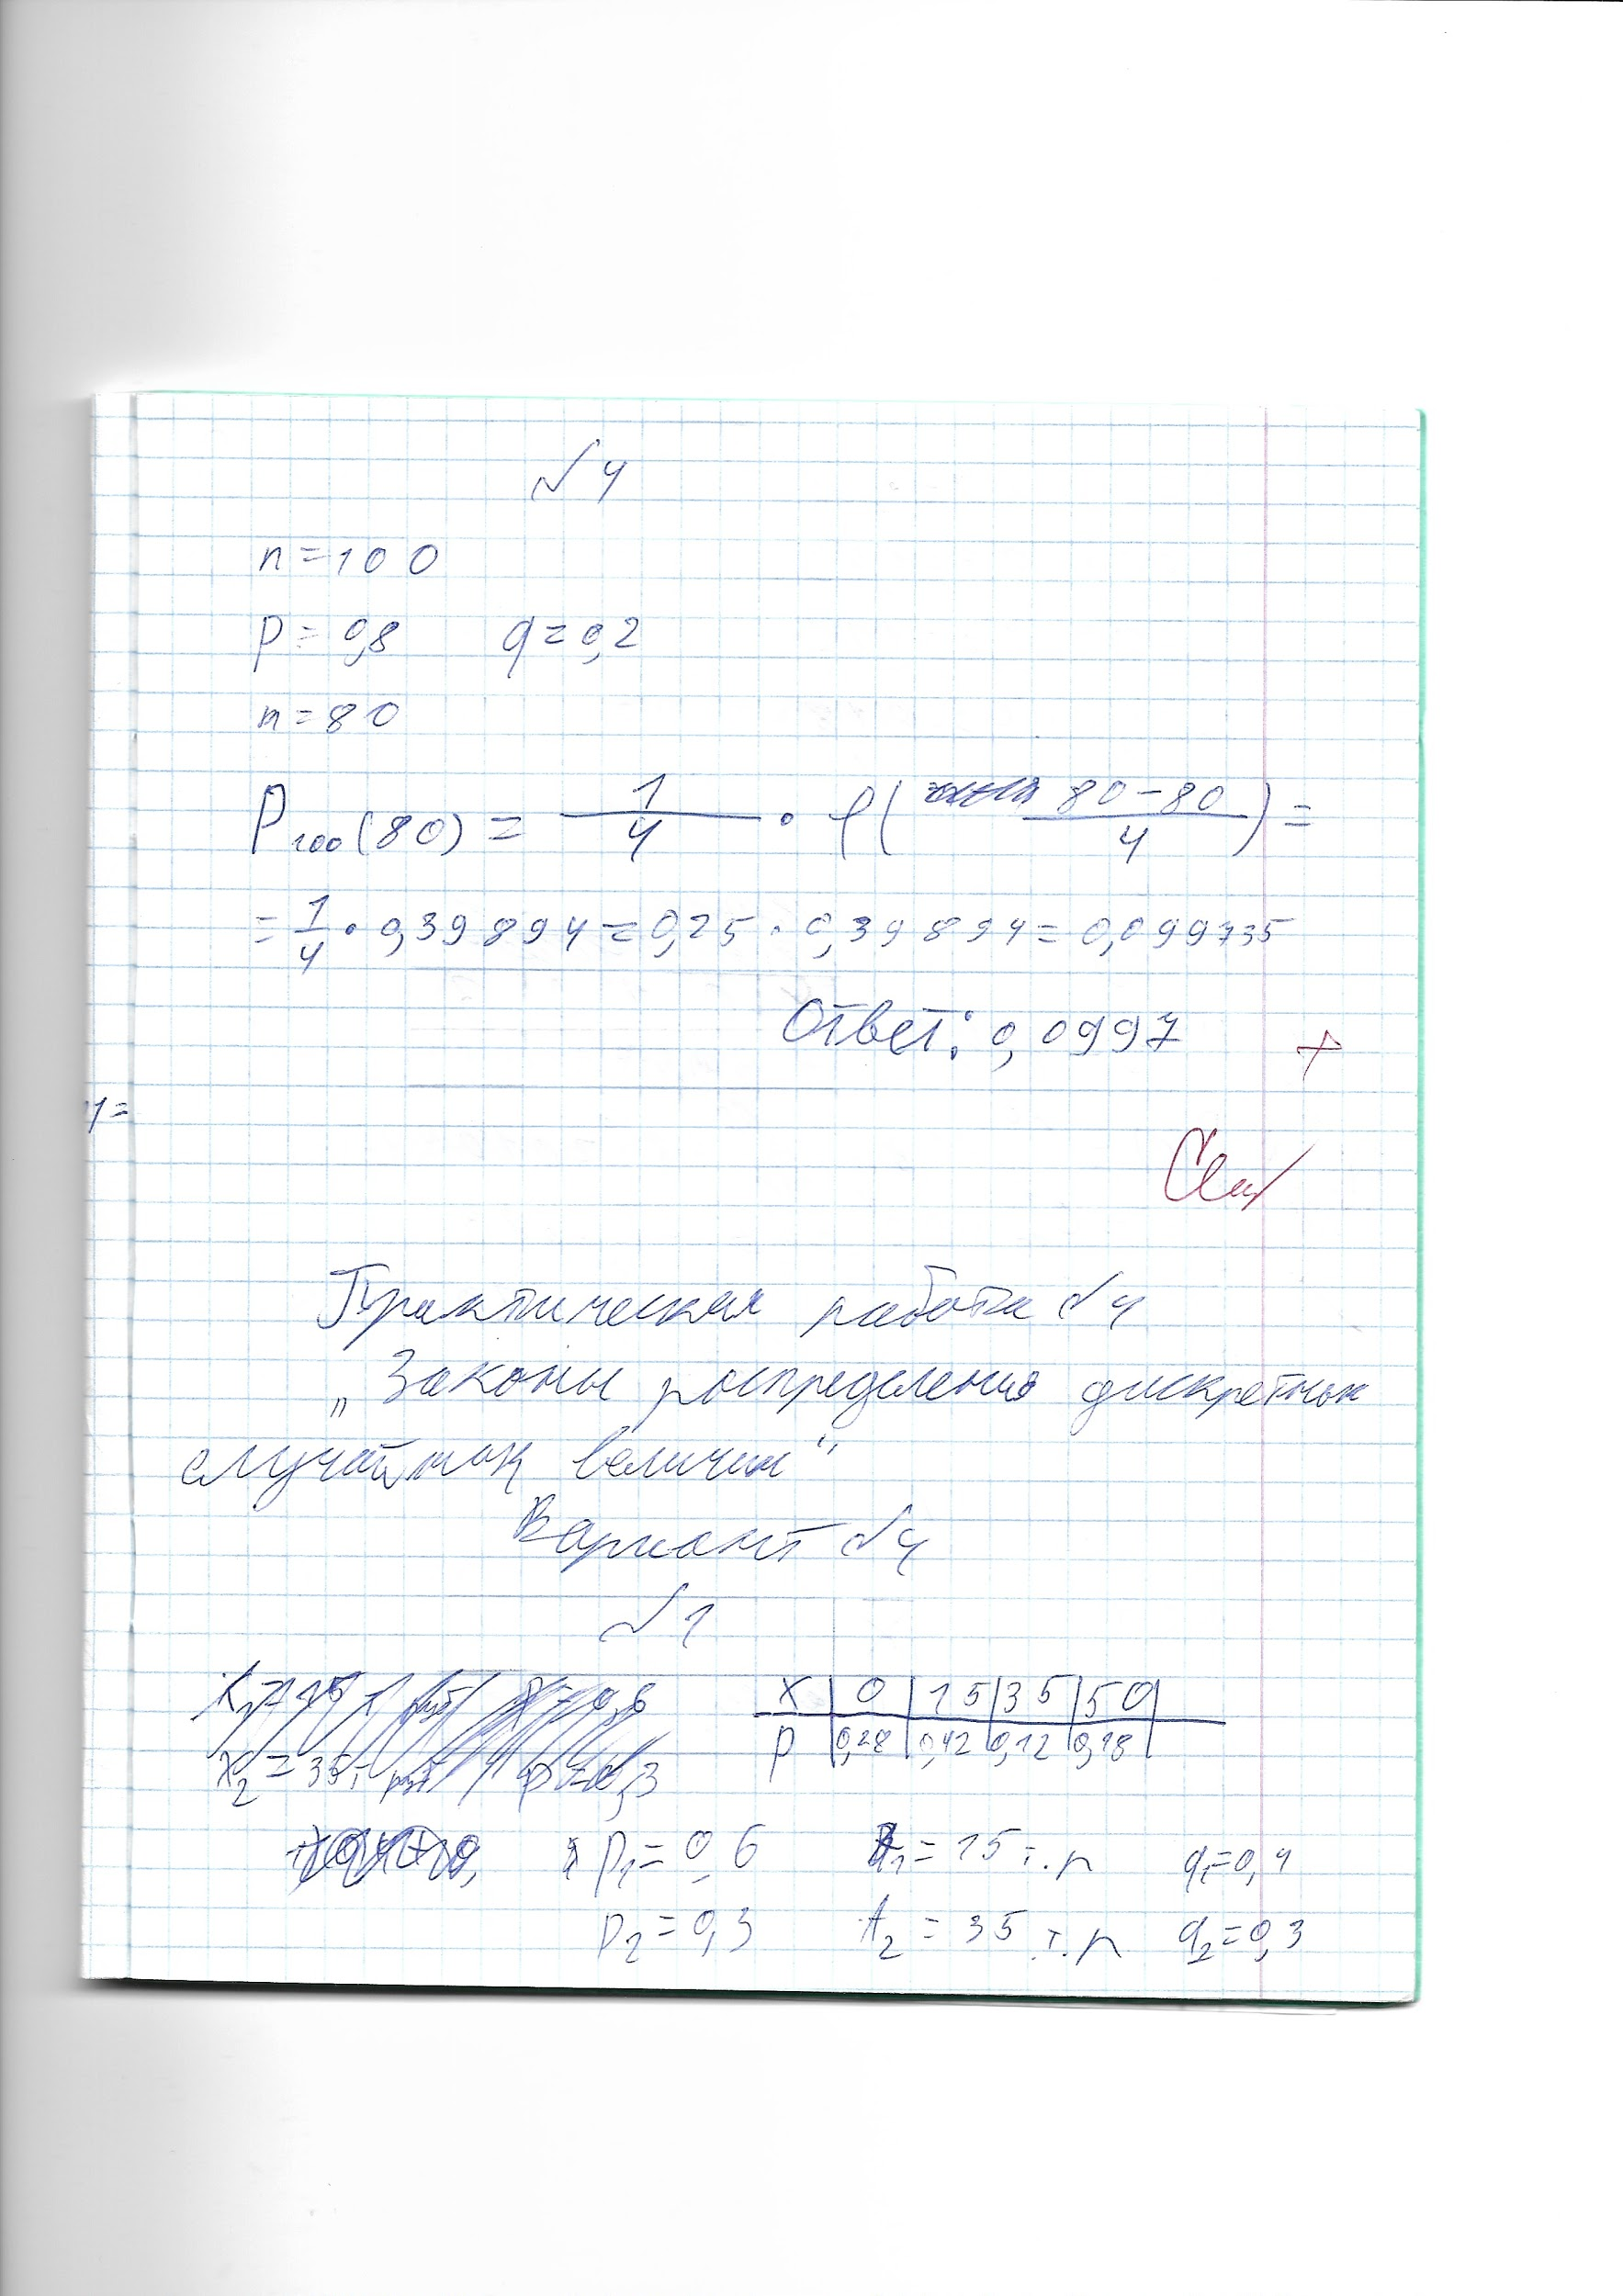 № 4
n = 100
p = 0,8 q = 0,2
m = 80
P₁₀₀(80) = 1/4 · φ(80-80/4) =
= 1/4 · 0,39894 = 0,25 · 0,39894 = 0,099735
Ответ: 0,0997 +
y =
Практическая работа № 4
„Законы роспределения дискретных
случайных величин“
Вариант № 4
№ 1
X 0 15 35 50
P 0,28 0,42 0,12 0,18
p₁ = 0,6 A₁ = 15 т.р q₁ = 0,4
p₂ = 0,3 A₂ = 35 т.р q₂ = 0,3